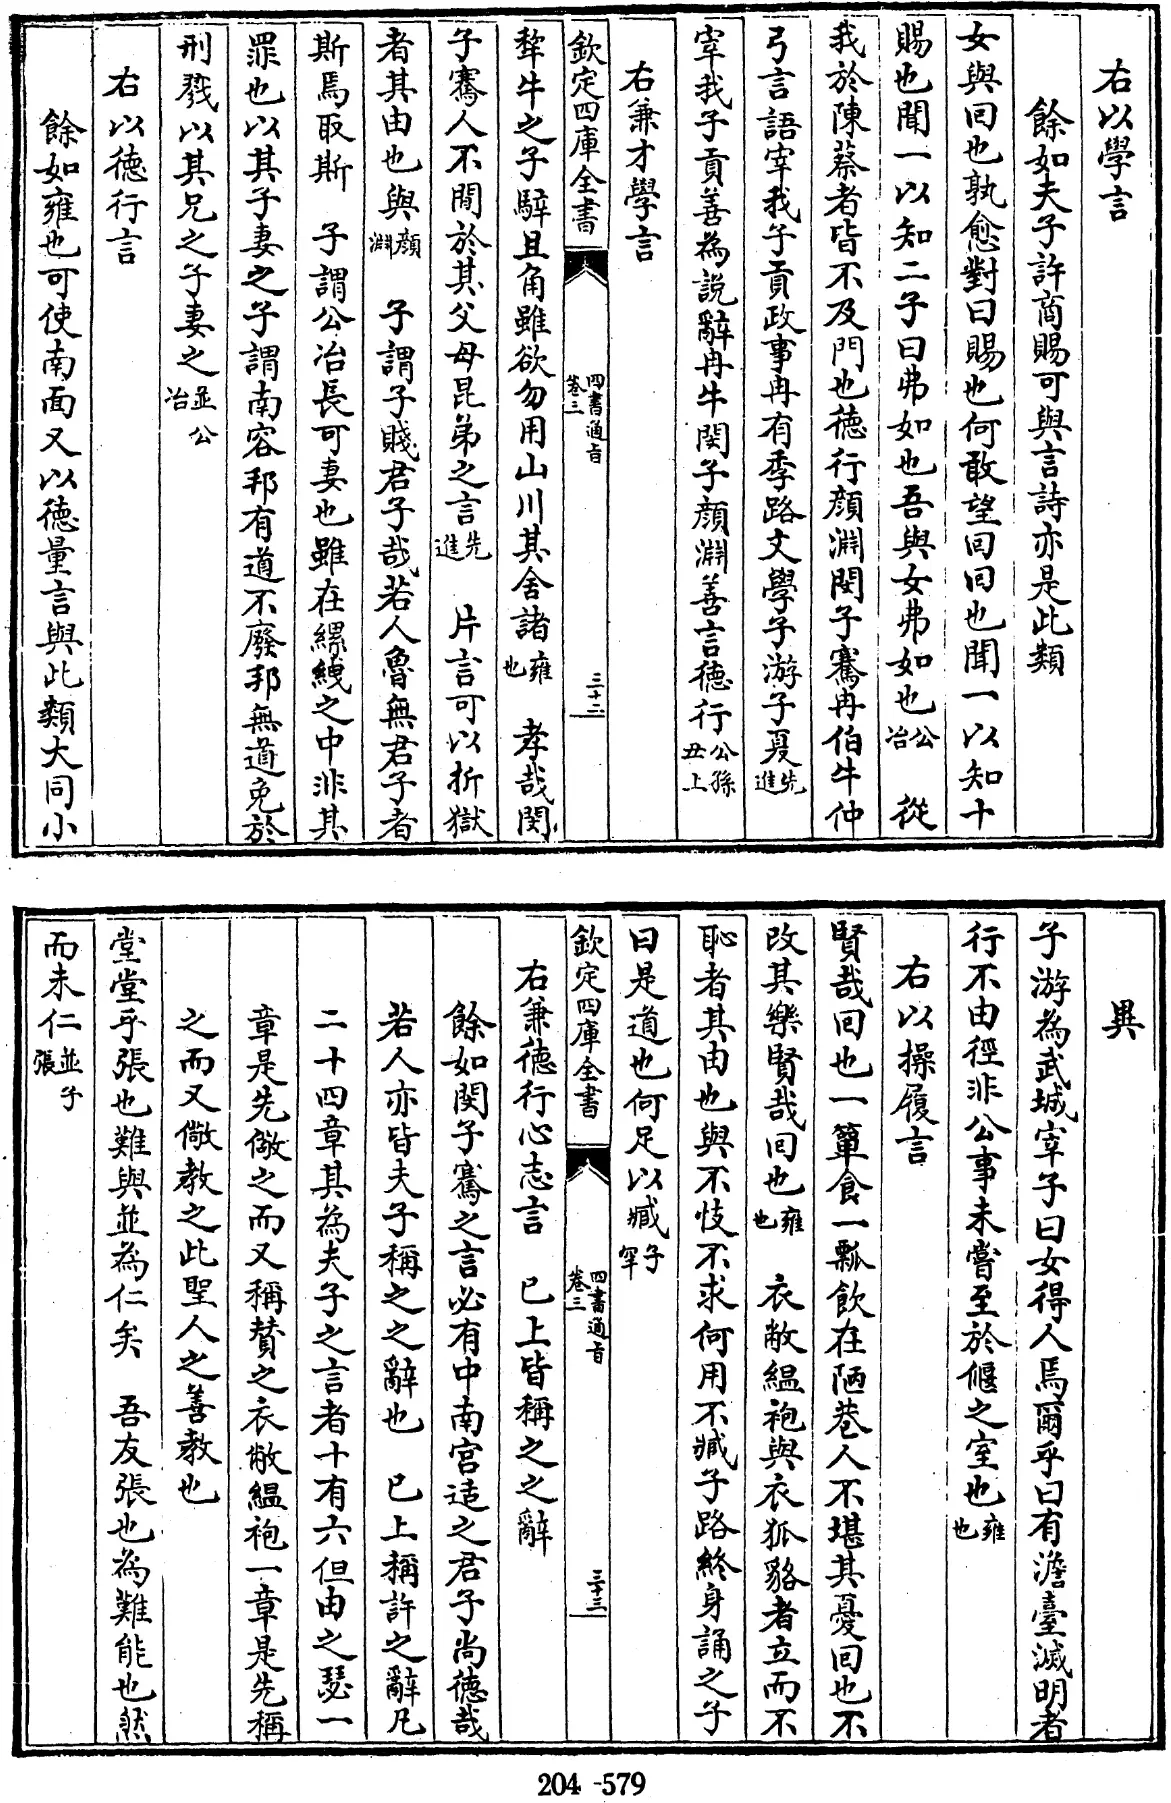 右以學言
餘如夫子許商賜可與言詩亦是此類
女與回也孰愈對曰賜也何敢望回回也聞一以知十
賜也聞一以知二子曰弗如也吾與女弗如也公冶 從
我於陳蔡者皆不及門也德行顔淵閔子騫冉伯牛仲
弓言語宰我子貢政事冉有季路文學子游子夏先進
宰我子貢善為說辭冉牛閔子顔淵善言德行公孫丑上
右兼才學言
欽定四庫全書 四書通旨卷三 三十二
犂牛之子騂且角雖欲勿用山川其舍諸雍也 孝哉閔
子騫人不間於其父母昆弟之言先進 片言可以折獄
者其由也與顔淵 子謂子賤君子哉若人魯無君子者
斯焉取斯 子謂公冶長可妻也雖在縲絏之中非其
罪也以其子妻之子謂南容邦有道不廢邦無道免於
刑戮以其兄之子妻之並公冶
右以德行言
餘如雍也可使南面又以德量言與此類大同小
異
子游為武城宰子曰女得人焉爾乎曰有澹臺滅明者
行不由徑非公事未嘗至於偃之室也雍也
右以操履言
賢哉回也一簞食一瓢飲在陋巷人不堪其憂回也不
改其樂賢哉回也雍也 衣敝緼袍與衣狐貉者立而不
恥者其由也與不忮不求何用不臧子路終身誦之子
曰是道也何足以臧子罕
欽定四庫全書 四書通旨卷三 三十三
右兼德行心志言 已上皆稱之之辭
餘如閔子騫之言必有中南宫适之君子尚德哉
若人亦皆夫子稱之之辭也 已上稱許之辭凡
二十四章其為夫子之言者十有六但由之瑟一
章是先儆之而又稱贊之衣敝緼袍一章是先稱
之而又儆教之此聖人之善教也
堂堂乎張也難與並為仁矣 吾友張也為難能也然
而未仁並子張
204-579